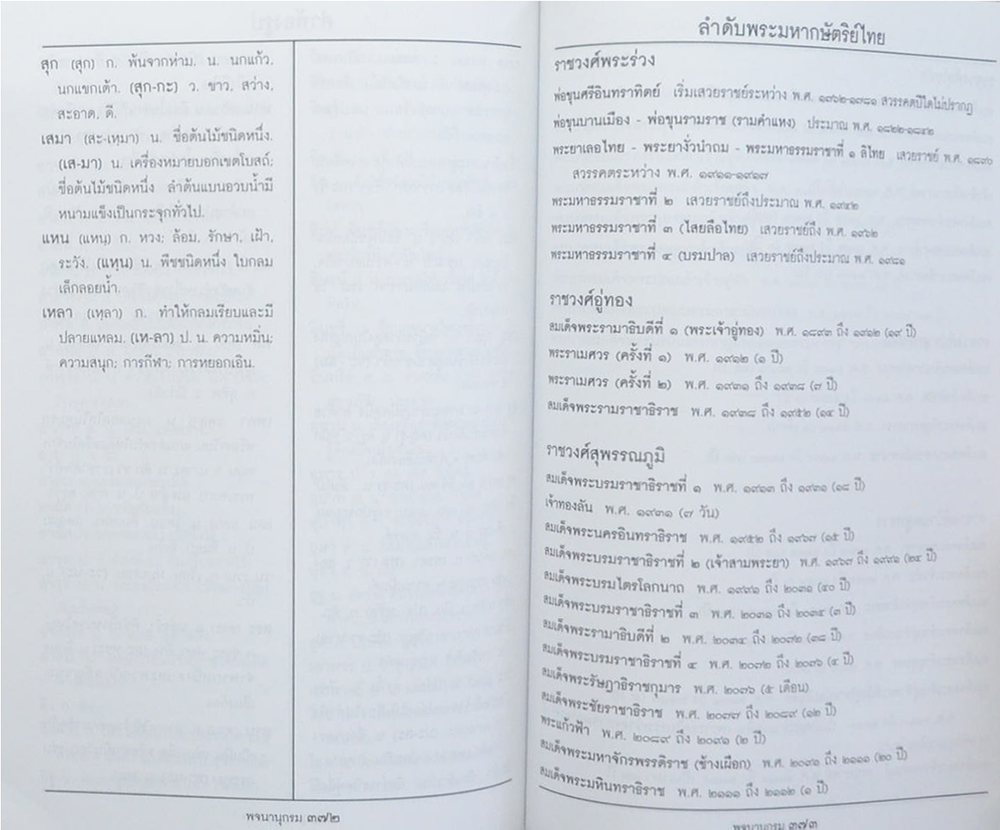 สุก (สุก) ก. พ้นจากห่าม. น. นกแก้ว,
นกแขกเต้า. (สุก-กะ) ว. ขาว, สว่าง,
สะอาด, ดี.
เสมา (สะ-เหฺมา) น. ชื่อต้นไม้ชนิดหนึ่ง.
(เส-มา) น. เครื่องหมายบอกเขตโบสถ์;
ชื่อต้นไม้ชนิดหนึ่ง ลำต้นแบนอวบน้ำมี
หนามแข็งเป็นกระจุกทั่วไป.
แหน (แหนฺ) ก. หวง; ล้อม, รักษา, เฝ้า,
ระวัง. (แหฺน) น. พืชชนิดหนึ่ง ใบกลม
เล็กลอยน้ำ.
เหลา (เหฺลา) ก. ทำให้กลมเรียบและมี
ปลายแหลม. (เห-ลา) ป. น. ความหมิ่น;
ความสนุก; การกีฬา; การหยอกเอิน.
พจนานุกรม ๓๗๒
ลำดับพระมหากษัตริย์ไทย
ราชวงศ์พระร่วง
พ่อขุนศรีอินทราทิตย์ เริ่มเสวยราชย์ระหว่าง พ.ศ. ๑๗๖๒-๑๗๘๑ สวรรคตปีใดไม่ปรากฏ
พ่อขุนบานเมือง - พ่อขุนรามราช (รามคำแหง) ประมาณ พ.ศ. ๑๘๒๒-๑๘๔๒
พระยาเลอไทย - พระยางั่วนำถม - พระมหาธรรมราชาที่ ๑ ลิไทย เสวยราชย์ พ.ศ. ๑๘๙๐
สวรรคตระหว่าง พ.ศ. ๑๙๑๑-๑๙๑๗
พระมหาธรรมราชาที่ ๒ เสวยราชย์ถึงประมาณ พ.ศ. ๑๙๔๒
พระมหาธรรมราชาที่ ๓ (ไสยลือไทย) เสวยราชย์ถึง พ.ศ. ๑๙๖๒
พระมหาธรรมราชาที่ ๔ (บรมปาล) เสวยราชย์ถึงประมาณ พ.ศ. ๑๙๘๑
ราชวงศ์อู่ทอง
สมเด็จพระรามาธิบดีที่ ๑ (พระเจ้าอู่ทอง) พ.ศ. ๑๘๙๓ ถึง ๑๙๑๒ (๑๙ ปี)
พระราเมศวร (ครั้งที่ ๑) พ.ศ. ๑๙๑๒ (๑ ปี)
พระราเมศวร (ครั้งที่ ๒) พ.ศ. ๑๙๓๑ ถึง ๑๙๓๘ (๗ ปี)
สมเด็จพระรามราชาธิราช พ.ศ. ๑๙๓๘ ถึง ๑๙๕๒ (๑๔ ปี)
ราชวงศ์สุพรรณภูมิ
สมเด็จพระบรมราชาธิราชที่ ๑ พ.ศ. ๑๙๑๓ ถึง ๑๙๓๑ (๑๘ ปี)
เจ้าทองลัน พ.ศ. ๑๙๓๑ (๗ วัน)
สมเด็จพระนครอินทราธิราช พ.ศ. ๑๙๕๒ ถึง ๑๙๖๗ (๑๕ ปี)
สมเด็จพระบรมราชาธิราชที่ ๒ (เจ้าสามพระยา) พ.ศ. ๑๙๖๗ ถึง ๑๙๙๑ (๒๔ ปี)
สมเด็จพระบรมไตรโลกนาถ พ.ศ. ๑๙๙๑ ถึง ๒๐๓๑ (๔๐ ปี)
สมเด็จพระบรมราชาธิราชที่ ๓ พ.ศ. ๒๐๓๑ ถึง ๒๐๓๔ (๓ ปี)
สมเด็จพระรามาธิบดีที่ ๒ พ.ศ. ๒๐๓๔ ถึง ๒๐๗๒ (๓๘ ปี)
สมเด็จพระบรมราชาธิราชที่ ๔ พ.ศ. ๒๐๗๒ ถึง ๒๐๗๖ (๔ ปี)
พระรัษฎาธิราชกุมาร พ.ศ. ๒๐๗๖ (๕ เดือน)
สมเด็จพระชัยราชาธิราช พ.ศ. ๒๐๗๗ ถึง ๒๐๘๙ (๑๒ ปี)
พระแก้วฟ้า พ.ศ. ๒๐๘๙ ถึง ๒๐๙๑ (๒ ปี)
สมเด็จพระมหาจักรพรรดิราช (ช้างเผือก) พ.ศ. ๒๐๙๑ ถึง ๒๑๑๑ (๒๐ ปี)
สมเด็จพระมหินทราธิราช พ.ศ. ๒๑๑๑ ถึง ๒๑๑๒ (๑ ปี)
พจนานุกรม ๓๗๓